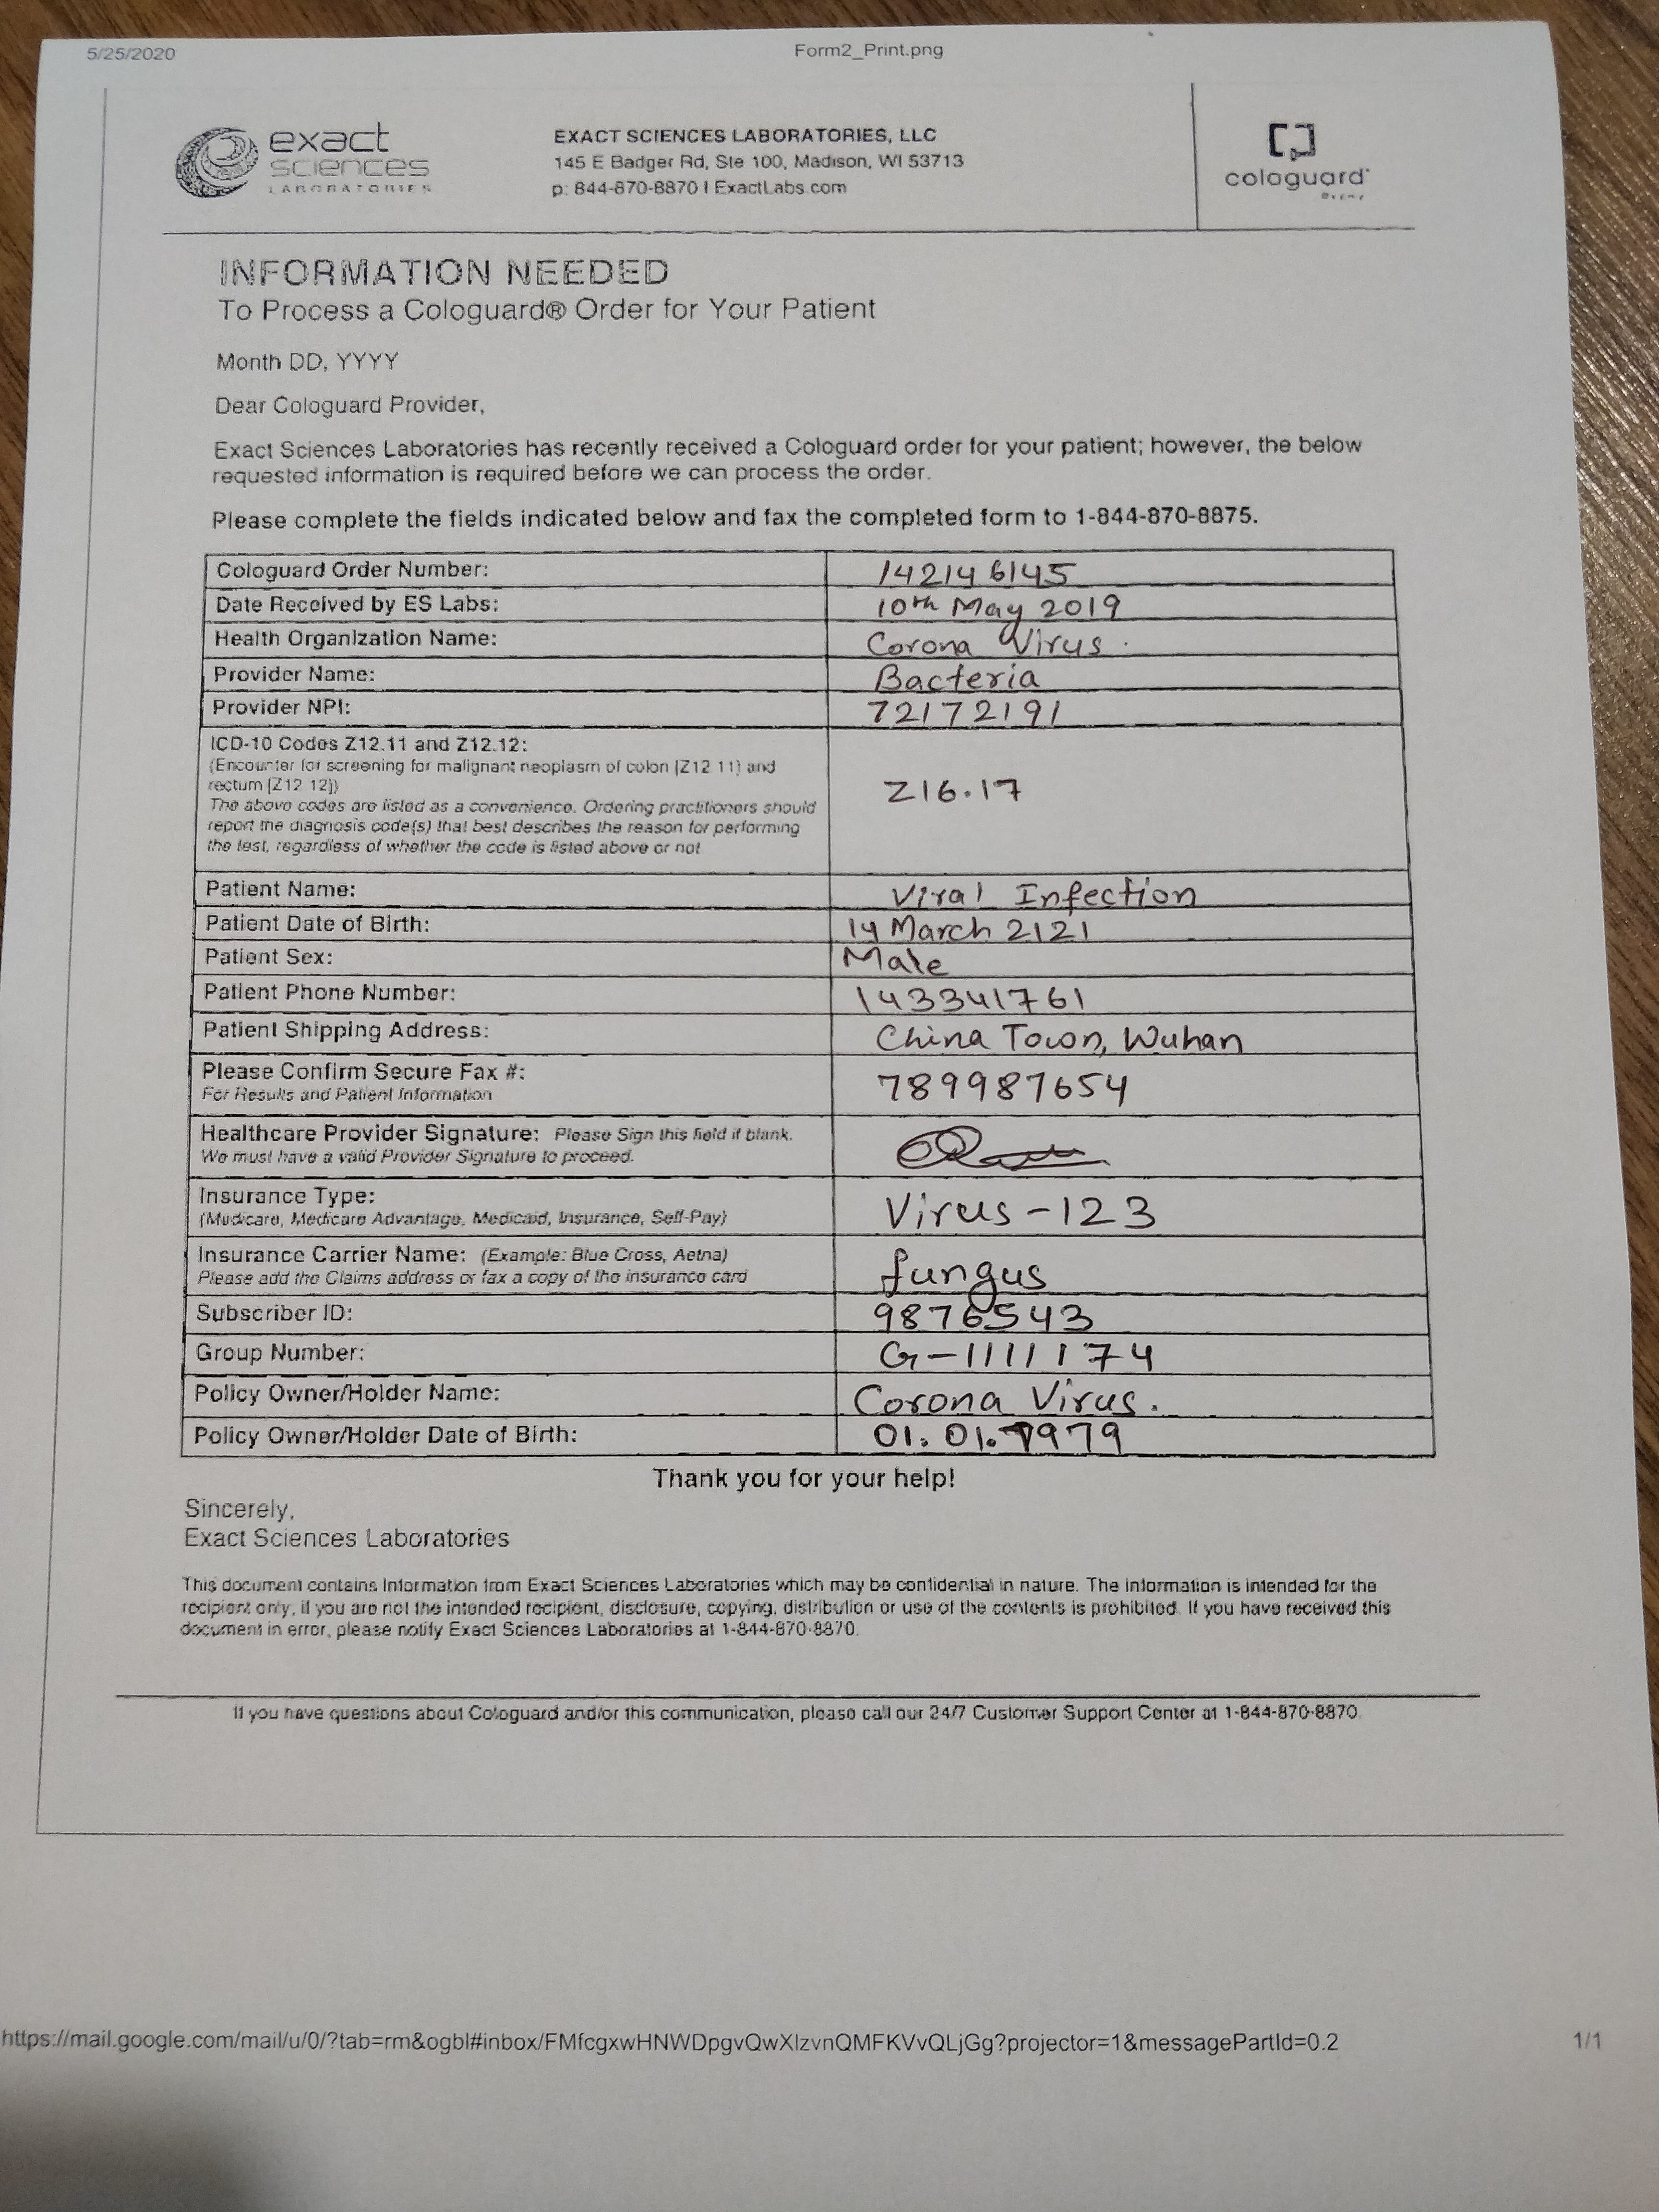 5/25/2020 Form2_Print.png
exact
sciences
LABORATORIES
EXACT SCIENCES LABORATORIES, LLC
145 E Badger Rd, Ste 100, Madison, WI 53713
p: 844-870-8870 | ExactLabs.com
cologuard
INFORMATION NEEDED
To Process a Cologuard® Order for Your Patient
Month DD, YYYY
Dear Cologuard Provider,
Exact Sciences Laboratories has recently received a Cologuard order for your patient; however, the below
requested information is required before we can process the order.
Please complete the fields indicated below and fax the completed form to 1-844-870-8875.
Cologuard Order Number: 142146145
Date Received by ES Labs: 10th May 2019
Health Organization Name: Corona Virus.
Provider Name: Bacteria
Provider NPI: 72172191
ICD-10 Codes Z12.11 and Z12.12:
(Encounter for screening for malignant neoplasm of colon [Z12 11) and
rectum [Z12 12])
Z16.17
The above codes are listed as a convenience. Ordering practitioners should
report the diagnosis code(s) that best describes the reason for performing
the test, regardless of whether the code is listed above or not
Patient Name: Viral Infection
Patient Date of Birth: 14 March 2121
Patient Sex: Male
Patient Phone Number: 143341761
Patient Shipping Address: China Town, Wuhan
Please Confirm Secure Fax #: 789987654
For Results and Patient Information
Healthcare Provider Signature: Please Sign this field if blank.
We must have a valid Provider Signature to proceed.
Insurance Type: Virus-123
(Medicare, Medicare Advantage, Medicaid, Insurance, Self-Pay)
Insurance Carrier Name: (Example: Blue Cross, Aetna) fungus
Please add the Claims address or fax a copy of the insurance card
Subscriber ID: 9876543
Group Number: G-1111174
Policy Owner/Holder Name: Corona Virus.
Policy Owner/Holder Date of Birth: 01.01.1979
Thank you for your help!
Sincerely,
Exact Sciences Laboratories
This document contains Information from Exact Sciences Laboratories which may be confidential in nature. The information is intended for the
recipient only, if you are not the intended recipient, disclosure, copying, distribution or use of the contents is prohibited. If you have received this
document in error, please notify Exact Sciences Laboratories at 1-844-870-8870.
If you have questions about Cologuard and/or this communication, please call our 24/7 Customer Support Center at 1-844-870-8870.
https://mail.google.com/mail/u/0/?tab=rm&ogbl#inbox/FMfcgxwHNWDpgvQwXlzvnQMFKVvQLjGg?projector=1&messagePartId=0.2 1/1